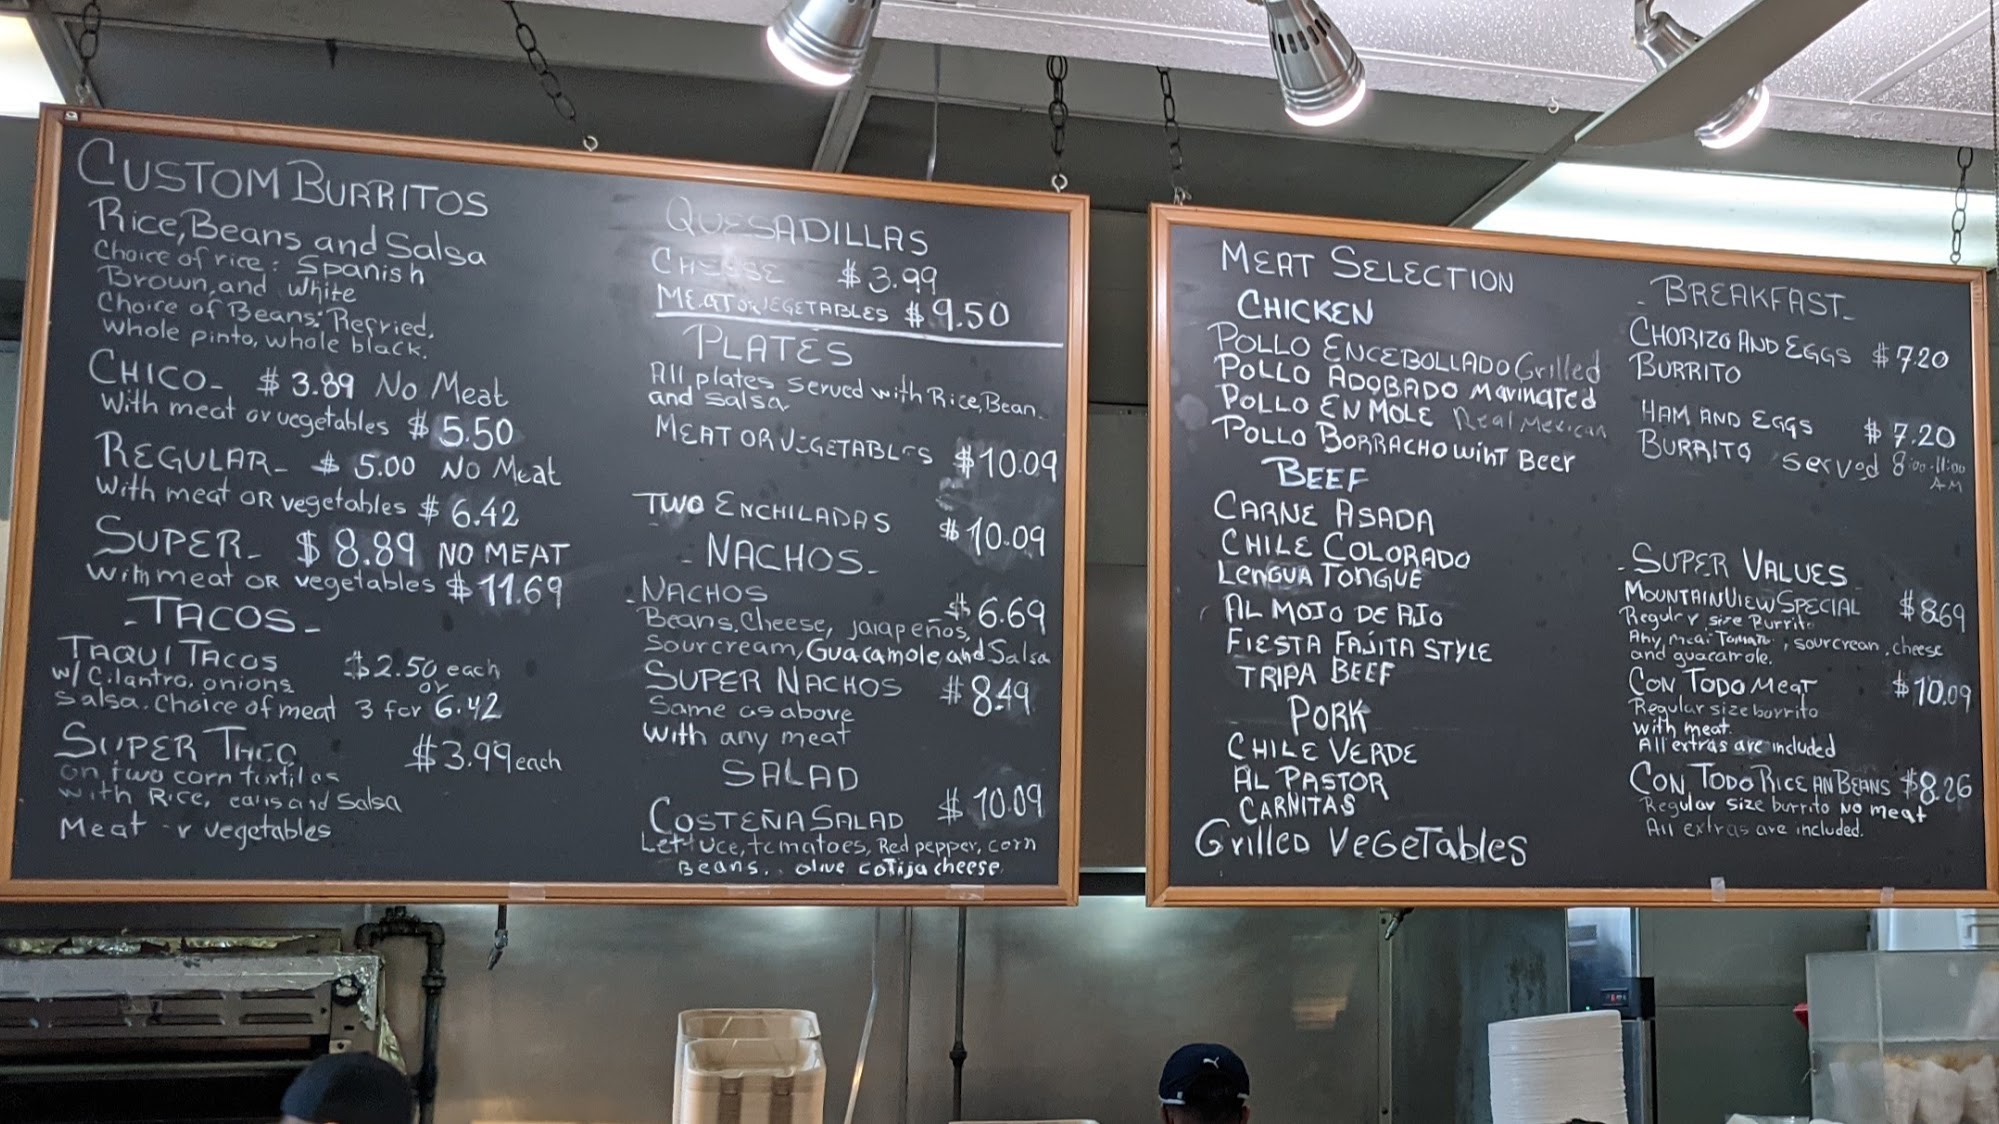 CUSTOM BURRITOS
Rice, Beans and Salsa
Choice of rice: Spanish
Brown, and White
Choice of Beans: Refried,
whole pinto, whole black.
CHICO- $ 3.89 No Meat
With meat or vegetables $ 5.50
REGULAR- $ 5.00 NO Meat
With meat OR vegetables $ 6.42
SUPER- $ 8.89 NO MEAT
With meat OR vegetables $ 11.69
-TACOS-
TAQUI TACOS $2.50 each
w/ Cilantro, onions or
Salsa. Choice of meat 3 for 6.42
SUPER $3.99 each
on two corn tortilas
with Rice, and Salsa
Meat vegetables
QUESADILLAS
CHEESE $3.99
MEAT OR VEGETABLES $9.50
PLATES
All plates served with Rice, Bean
and salsa
MEAT OR VEGETABLES $10.09
TWO ENCHILADAS $10.09
-NACHOS-
-NACHOS $6.69
Beans, Cheese, jalapeños,
Sourcream, Guacamole and Salsa
SUPER NACHOS $8.49
Same as above
With any meat
SALAD
COSTEÑA SALAD $10.09
Lettuce, tomatoes, Red pepper, corn
Beans, olive cotija cheese
MEAT SELECTION
CHICKEN
POLLO ENCEBOLLADO Grilled
POLLO ADOBADO Marinated
POLLO EN MOLE Real Mexican
POLLO BORRACHO wiht Beer
BEEF
CARNE ASADA
CHILE COLORADO
LENGUA TONGUE
AL MOJO DE AJO
FIESTA FAJITA STYLE
TRIPA BEEF
PORK
CHILE VERDE
AL PASTOR
CARNITAS
GRILLED VEGETABLES
-BREAKFAST-
CHORIZO AND EGGS $7.20
BURRITO
HAM AND EGGS $7.20
BURRITO served 8:00-11:00
AM
-SUPER VALUES
MOUNTAIN VIEW SPECIAL $8.69
Regular size Burrito
Any meat Tomato, sourcream, cheese
and guacamole.
CON TODO MEAT $10.09
Regular size borrito
with meat.
All extras are included
CON TODO RICE AN BEANS $8.26
Regular size burrito NO meat
All extras are included.